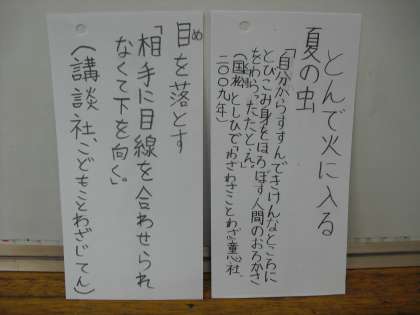 とんで火に入る
夏の虫
「自分からすすんできけんなところに
とびこみ身をほろぼす人間のおろかさ
をわらったたとえ。」
(国松としひで『わざわざことわざ』童心社、
二〇〇九年)
目を落とす
め
「相手に目線を合わせられ
なくて下を向く。」
(講談社、こどもことわざじてん)